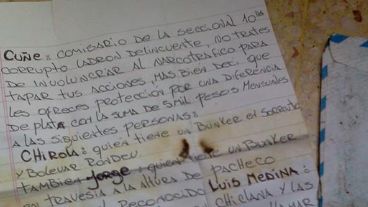 CUÑE = COMISARIO DE LA SECCIONAL 10ma
CORRUPTO LADRON DELINCUENTE, NO TRATES
DE INVOLUCRAR AL NARCOTRAFICO PARA
TAPAR TUS ACCIONES, MAS BIEN DECI QUE
LES OFRECES PROTECCION POR UNA DIFERENCIA
DE PLATA CON LA SUMA DE 5 MIL PESOS MENSUALES
A LAS SIGUIENTES PERSONAS:
CHIROLA: QUIEN TIENE UN BUNKER EN SORRENTO
Y BOLEVAR RONDEU.
TAMBIEN JORGE: QUIEN TIENE UN BUNKER
EN TRAVESIA A LA ALTURA DE PACHECO
RECONOCIDO LUIS MEDINA:
CHICLANA Y LAS